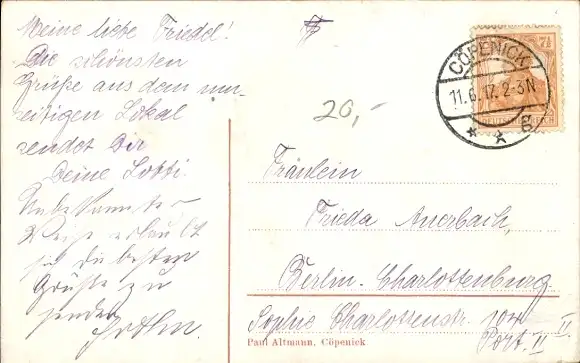 Meine liebe Friedel!
Die schönsten
Grüße aus dem
Lokal
sendet Dir
Deine Lotti.
Unbekannter
Weise erlaubt
sich die besten
Grüße zu
senden
20,-
CÖPENICK
11.6.17. 2-3N
* * g
7½
DEUTSCHES REICH
Fräulein
Frieda Auerbach,
Berlin-Charlottenburg
Sophie Charlottenstr. 104
Port. II
Paul Altmann, Cöpenick